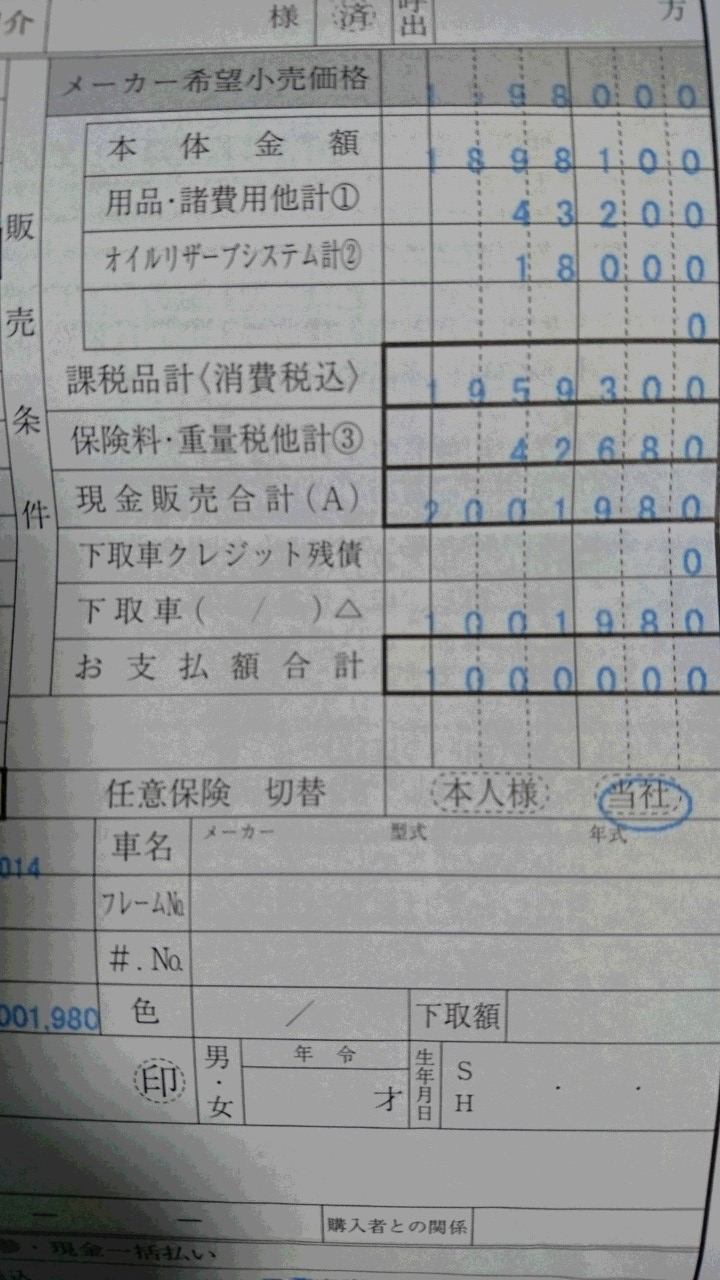 介 様 済 呼出 方
メーカー希望小売価格 98000
販売条件
本体金額 1898100
用品・諸費用他計① 43200
オイルリザーブシステム計② 18000
0
課税品計〈消費税込〉 1959300
保険料・重量税他計③ 42680
現金販売合計(A) 2001980
下取車クレジット残債 0
下取車( / )△ 1001980
お支払額合計 1000000
任意保険 切替 本人様 当社
014 車名 メーカー 型式 年式
フレームNo.
#.No.
001,980 色 / 下取額
印 男・女 年令 才 生年月日 S H ・ ・
— — 購入者との関係
・現金一括払い